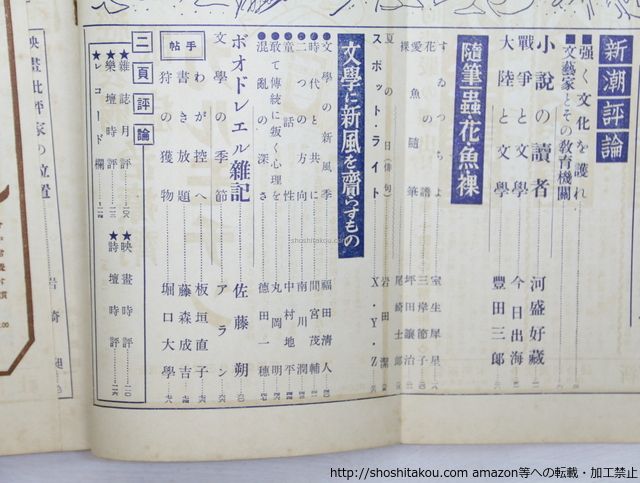 新潮評論
★强く文化を護れ
★文藝家とその敎育機關
小說の讀者 河盛好藏
戰爭と文學 今日出海
大陸と文學 豐田三郞
隨筆蟲花魚裸
すゐつちよ 室生犀星
花譜 三岸節子
愛魚の隨筆 坪田讓治
裸 尾崎士郞
夏の日(俳句) 岩田潔
スポット・ライト X・Y・Z
文學に新風を齎らすもの
文學の新風季 福田淸人
時代と共に 間宮茂輔
二つの方向 南川潤
童話性 中村地平
敢て傳統に叛く心理を 丸岡明
混亂の深さ 德田一穗
ボオドレエル雜記 佐藤朔
文學の季節 アラン
手帖
わが控へ 板垣直子
書き放題 藤森成吉
狩の獲物 堀口大學
二頁評論
★雜誌月評
★樂壇時評
★レコード欄
★映畫時評
★詩壇時評
映畫批評家の位置 岩崎昶
shoshitakou.com
http://shoshitakou.com amazon等への転載・加工禁止